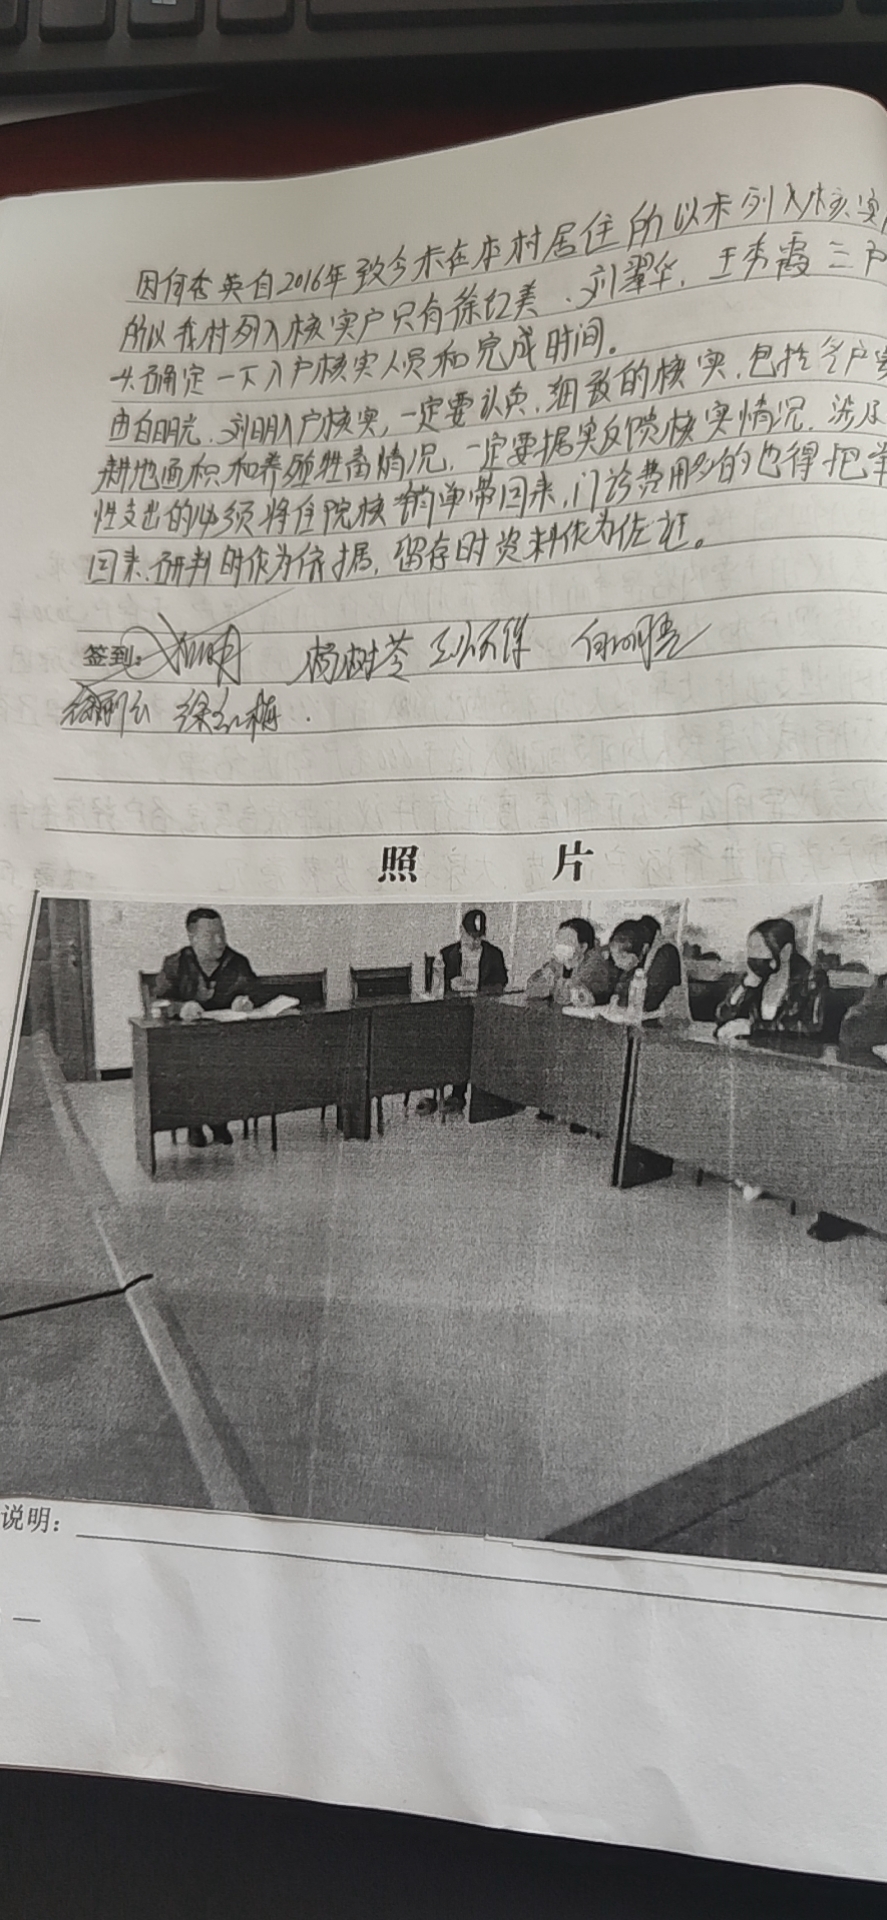 因何秀英自2016年致今未在本村居住所以未列入核实
所以我村列入核实户只有徐红美、刘翠华、王秀霞三户
共确定一下入户核实人员和完成时间。
由白明光、刘明入户核实,一定要认真、细致的核实,包括各户家
耕地面积和养殖牲畜情况,一定要据实反馈核实情况,涉及
性支出的必须将住院核销单带回来,门诊费用多的也得把单
回来,研判时作为依据,留存时资料作为佐证。
签到:
杨树苓
徐红梅
照 片
说明: